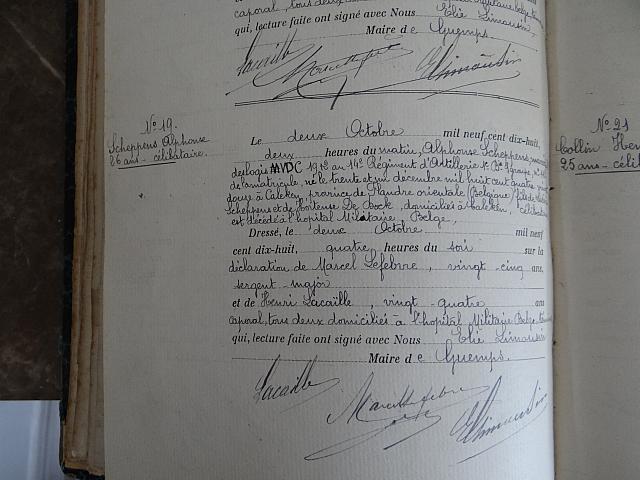 caporal, tous deux
qui, lecture faite ont signé avec Nous Elie Limousin,
Maire de Guemps.
Lacaille
N° 19.
Scheppens Alphonse
26 ans - célibataire.
Le deux Octobre mil neuf cent dix-huit,
deux heures du matin, Alphonse Scheppens,
des logis MVDC au 14e Régiment d'Artillerie
de matricule, né le trente et un décembre mil huit cent quatre
douze à Calcken, province de Flandre orientale (Belgique) fils de
Scheppens et de Hortense De Bock, domiciliés à Calcken, célibataire
est décédé à l'hopital Militaire Belge,
Dressé, le deux Octobre mil neuf
cent dix-huit, quatre heures du soir sur la
déclaration de Marcel Lefebvre, vingt-cinq ans,
sergent-major
et de Henri Lacaille, vingt-quatre ans
caporal, tous deux domiciliés à l'hopital Militaire Belge,
qui, lecture faite ont signé avec Nous Elie Limousin
Maire de Guemps.
Lacaille
N° 21
Collin Hen
25 ans - célib